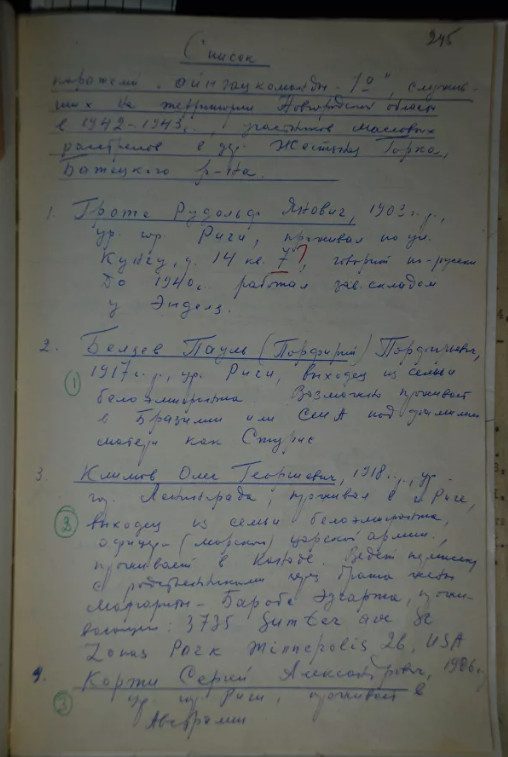 245
Список
карателей "айнзацкоманды - 1а", служив-
ших на территории Новгородской области
в 1942-1943г., участников массовых
расстрелов в дер. Жестяная Горка,
Батецкого р-на.
1. Гроте Рудольф Янович, 1903 г.р.,
ур. гор. Риги, проживал по ул.
д. 14 кв. 7?, говорит по-русски
До 1940г. работал зав. складом
у
2. Беляев Пауль (Порфирий) Порфирьевич,
1917 г.р., ур. Риги, выходец из семьи
1 белоэмигранта Возможно проживает
в Бразилии или США под фамилией
матери как Стурис
3. Климов Олег Георгиевич, 1918 г.р., ур.
гор. Ленинграда, проживал в г. Риге,
3 выходец из семьи белоэмигранта,
офицера (морского) царской армии,
проживает в Канаде. Ведет переписку
с родственниками через брата жены
Маргариты - Эдгарта, прожи-
вающего: 3735 Sumter ave So
Park Minneapolis 26, USA
4. Каржи Сергей Александрович, 1906г.
ур. гор. Риги, проживает в
Австралии